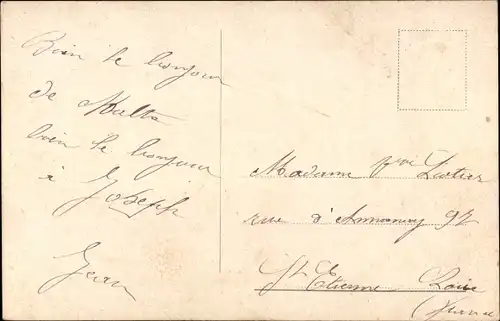 Bien le bonjour
de Malta
bien le bonjour
à Joseph
Jean
Madame Vve
rue d'Annonay 92
St Etienne Loire
(France